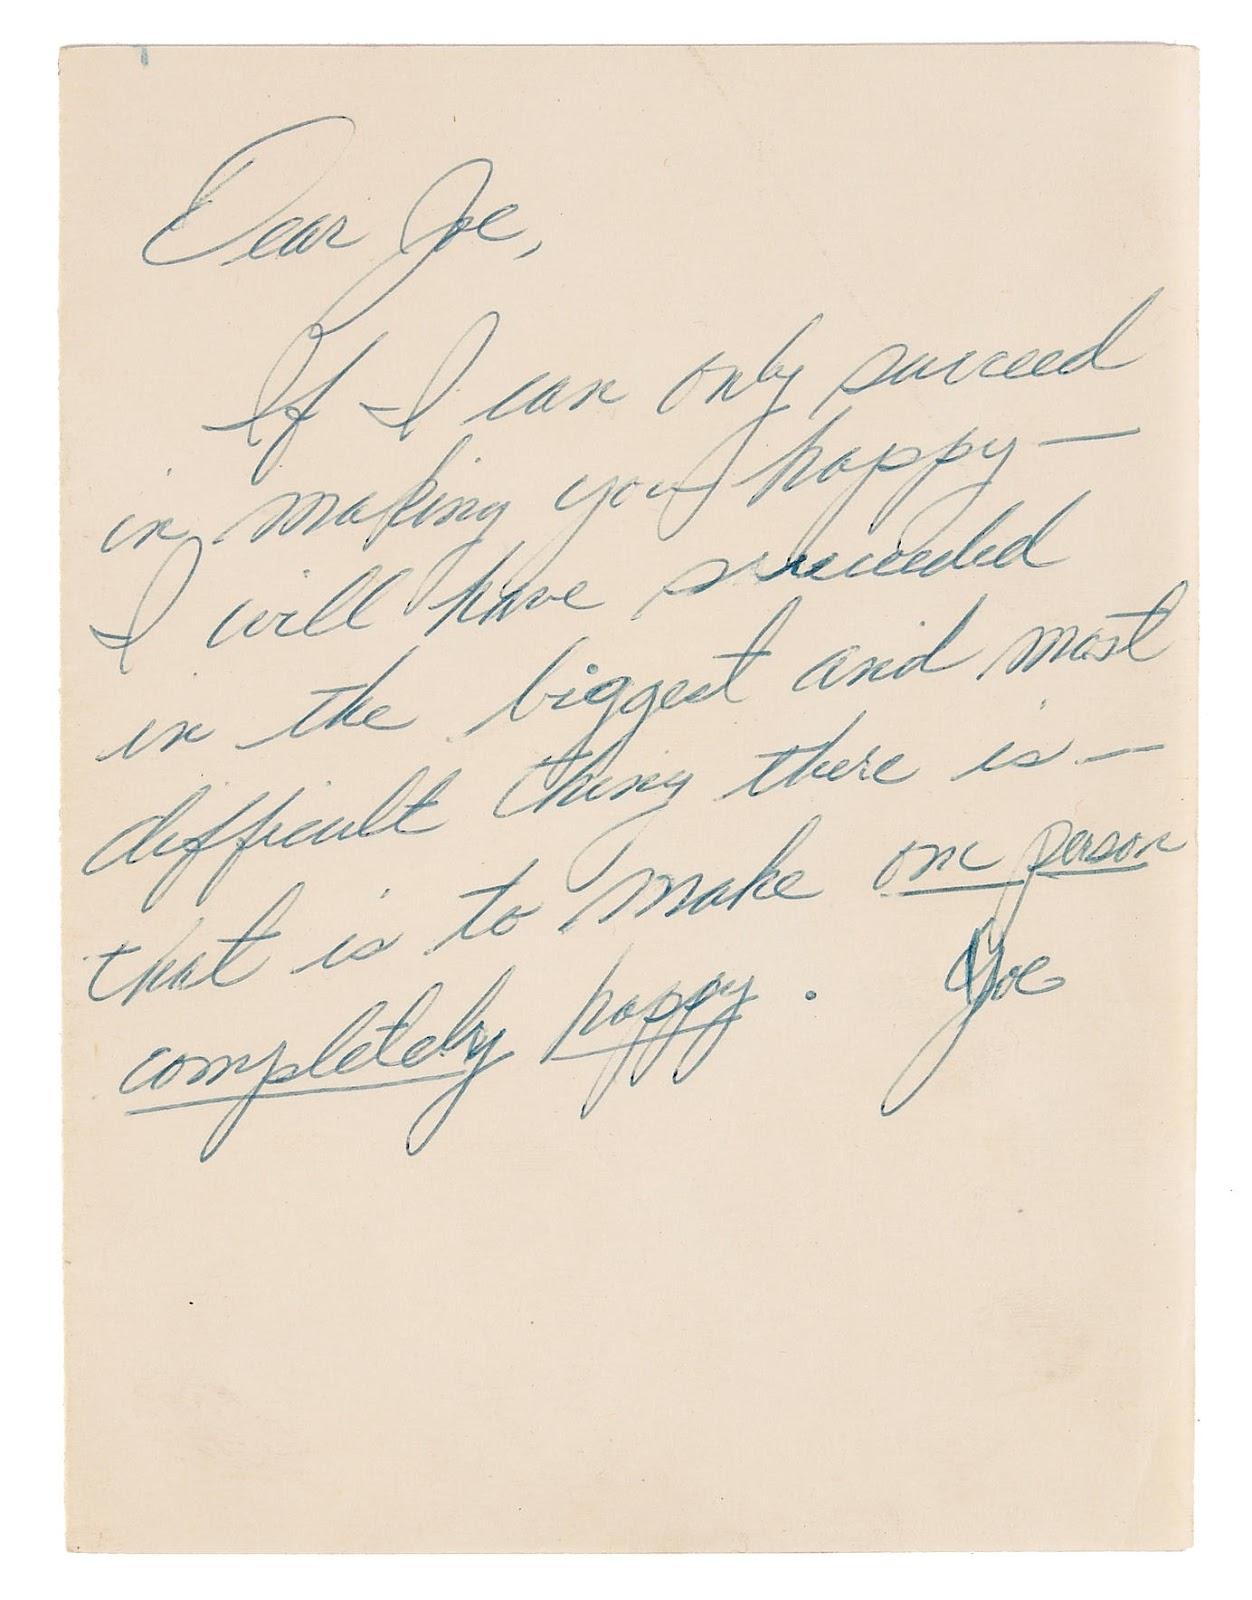 Dear Joe,
If I can only succeed
in making you happy —
I will have succeeded
in the biggest and most
difficult thing there is —
that is to make one person
completely happy. Joe